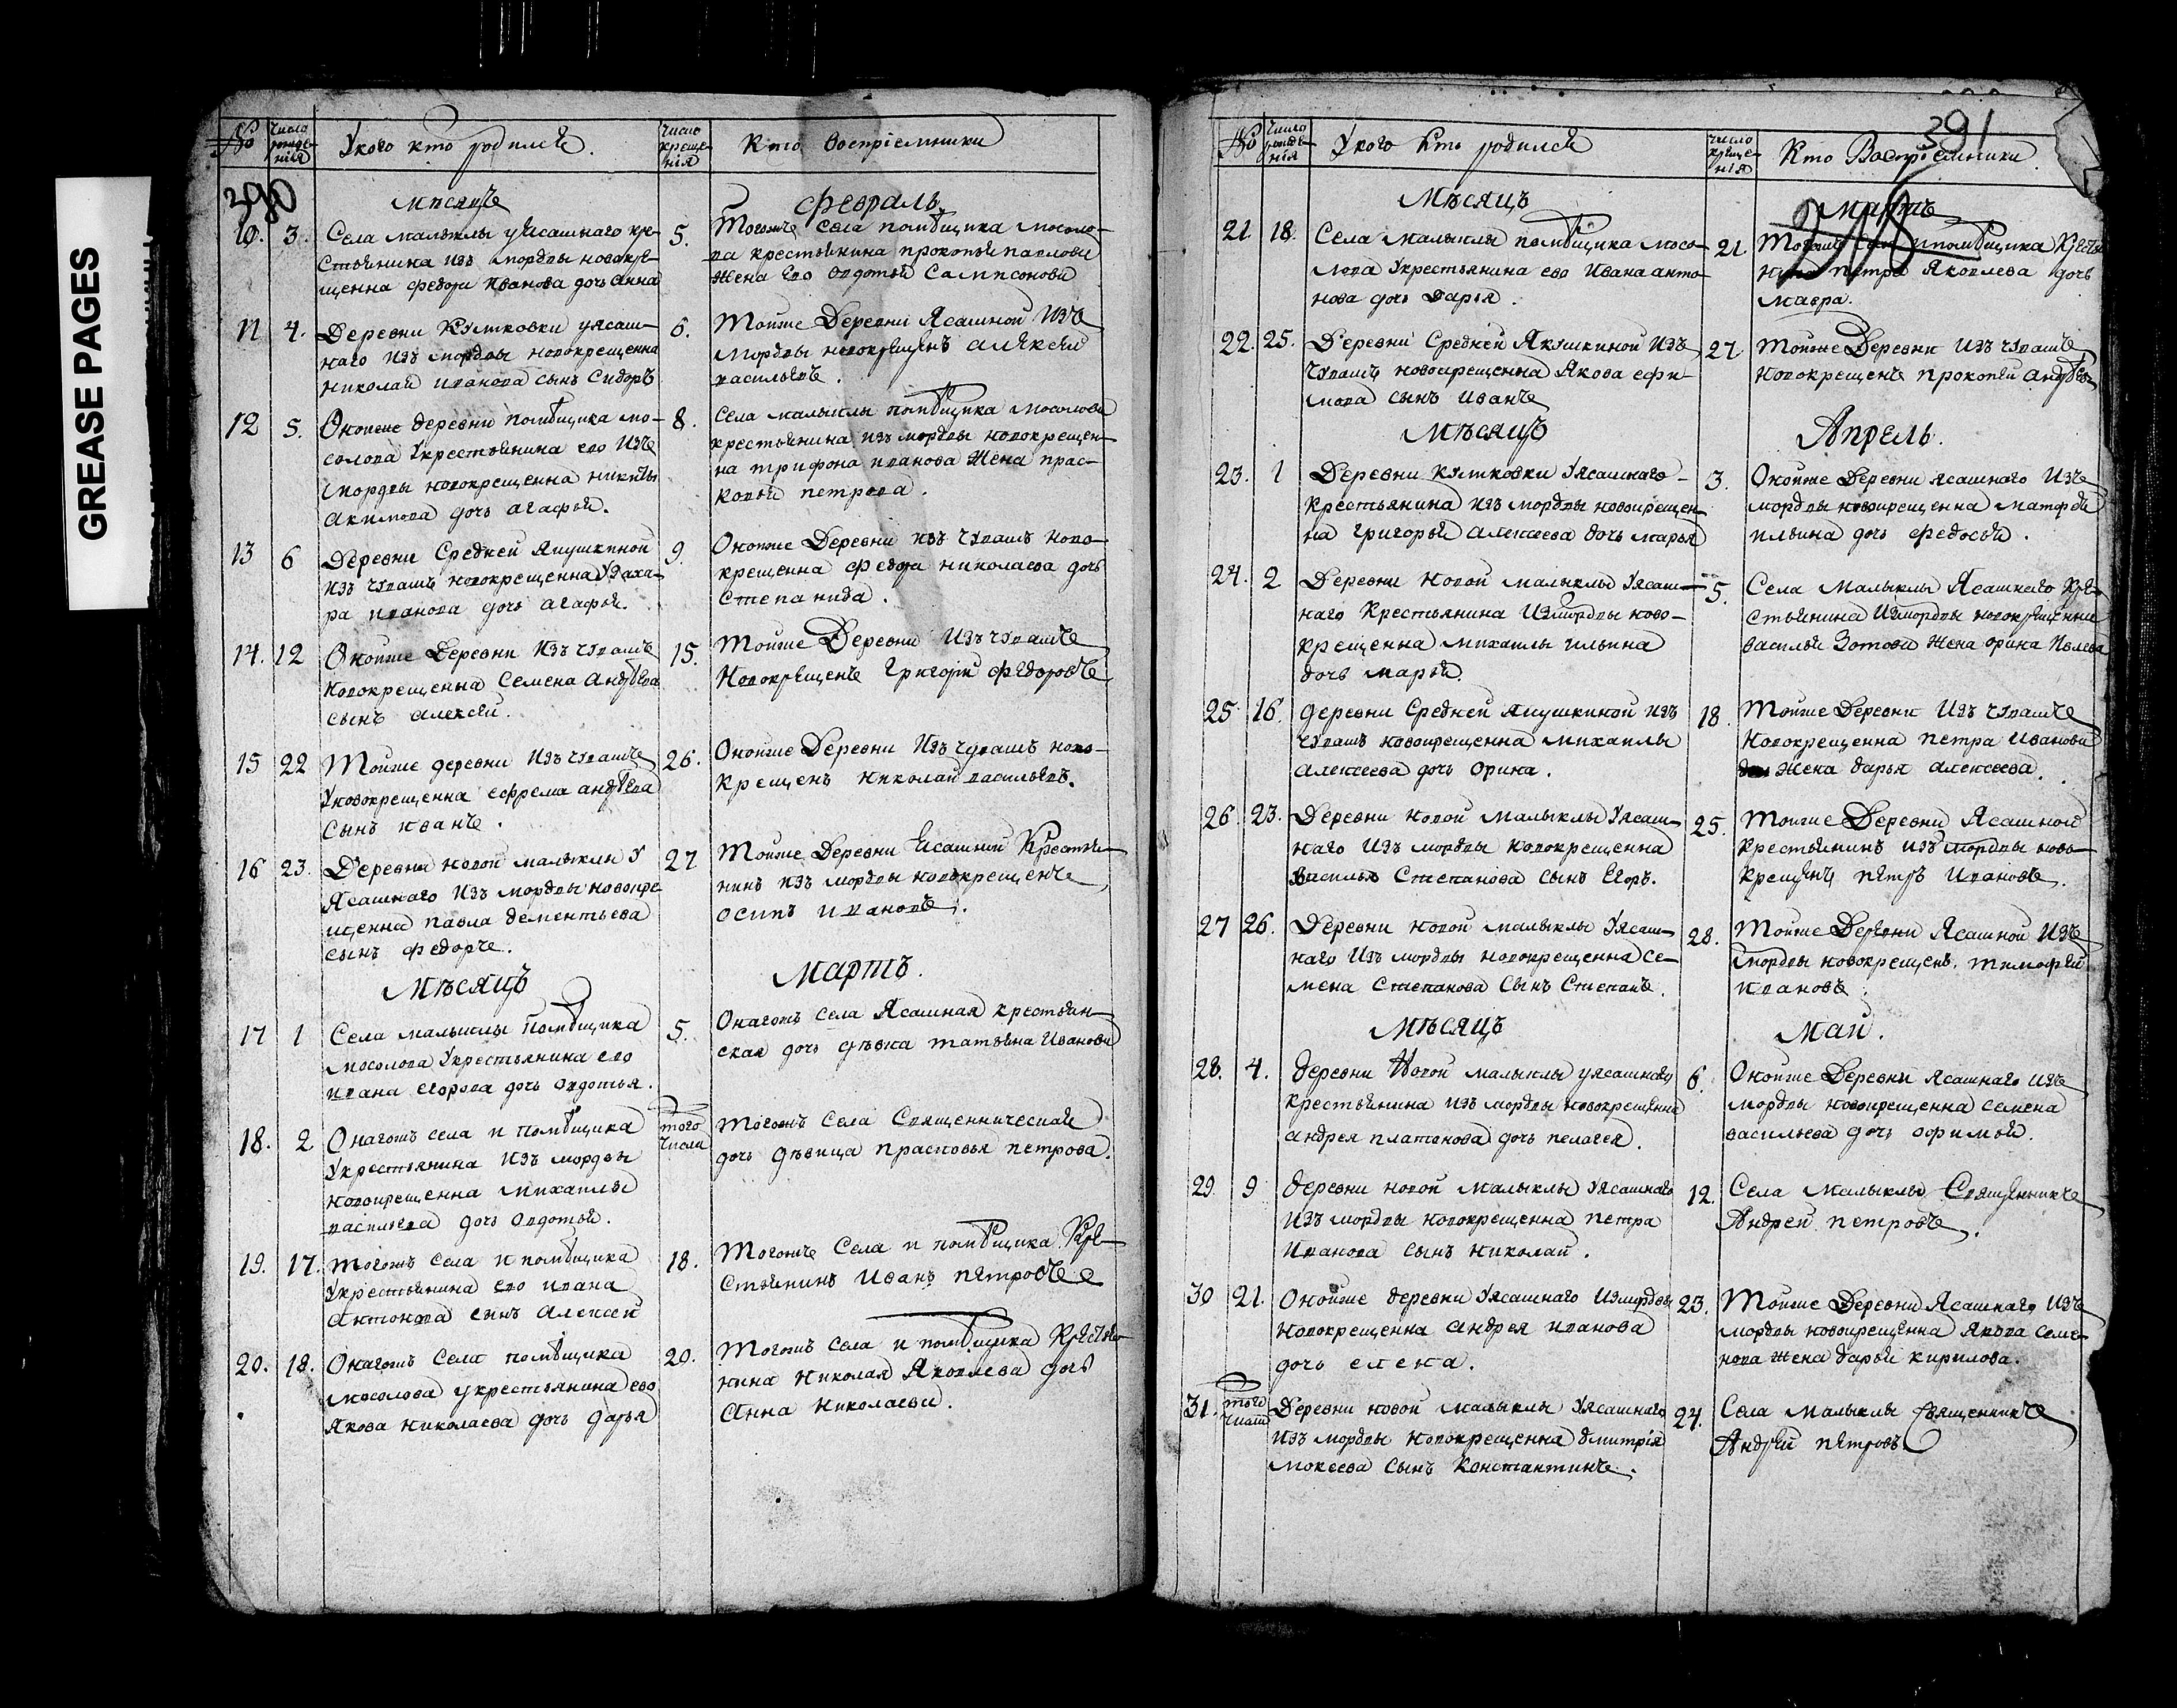 GREASE PAGES
№
Число рожденія
У кого кто родился.
Число крещенія
Кто воспріемники
290
Мѣсяцъ
Февраль
10. 3.
Села малыклы у Ясашнаго кре-
стьянина изъ мордвы новокре-
щенна федора Иванова дочь Анна
5.
Тогожъ села помѣщика мосоло-
ва крестьянина прокопья павлова
жена его авдотья Сампсонова
11 4.
Деревни Кулковки у ясаш-
наго изъ мордвы новокрещенна
николая иванова сынъ Сидоръ
6.
Тойже Деревни Ясашной изъ
мордвы новокрещенъ алексей
васильевъ.
12 5.
Оной же деревни помѣщика мо-
солова У крестьянина его изъ
мордвы новокрещенна никиты
акимова дочь агафья.
8.
Села малыклы помѣщика мосолова
крестьянина изъ мордвы новокрещен-
на трифона иванова жена прас-
ковья петрова.
13 6
Деревни Средней Якушкиной
изъ чувашъ новокрещенна Заха-
ра иванова дочь агафья.
9.
Оной же Деревни изъ чувашъ ново-
крещенна федора николаева дочь
степанида.
14. 12
Оной же Деревни изъ чувашъ
новокрещенна Семена андрѣева
сынъ алексей.
15.
Тойже Деревни изъ чувашъ
новокрещенъ Григорей федоровъ
15 22
Тойже деревни изъ чувашъ
У новокрещенна ефрема андрѣева
сынъ иванъ.
26.
Оной же Деревни изъ чувашъ ново-
крещенъ николай васильевъ.
16 23.
Деревни новой малыклы у
Ясашнаго изъ мордвы новокре-
щенна павла дементьева
сынъ федоръ.
27
Тойже Деревни Ясашной Крестья-
нинъ изъ мордвы новокрещенъ
осипъ ивановъ.
Мѣсяцъ
Мартъ.
17 1
Села малыклы помѣщика
мосолова У крестьянина его
ивана егорова дочь авдотья.
5.
Онагожъ села Ясашная крестьян-
ская дочь дѣвка татьяна Иванова
18. 2
Онагожъ села и помѣщика
У крестьянина изъ мордвы
новокрещенна михаилы
васильева дочь авдотья.
того числа
Тогожъ села Священническая
дочь дѣвица прасковья петрова.
19. 17.
Тогожъ села и помѣщика
У крестьянина его ивана
антонова сынъ алексей
18.
Тогожъ Села и помѣщика Кре-
стьянинъ Иванъ петровъ
20. 18.
Онагожъ села помѣщика
мосолова у крестьянина ево
Якова николаева дочь дарья
20.
Тогожъ села и помѣщика Крестья-
нина николая Яковлева дочь
Анна николаева.
391
№
Число рожденія
У кого кто родился
Число крещенія
Кто Воспріемники
Мѣсяцъ
Мартъ
21. 18.
Села малыклы помѣщика мосо-
лова У крестьянина ево Ивана анто-
нова дочь дарья.
21.
Тогожъ села и помѣщика Крестья-
нина петра Яковлева дочь
мавра.
22. 25.
Деревни Средней Якушкиной изъ
чувашъ новокрещенна Якова ефи-
мова сынъ иванъ
27
Тойже Деревни изъ чувашъ
новокрещенъ прокопей андрѣевъ
Мѣсяцъ
Апрель.
23. 1
Деревни кулковки У ясашнаго
крестьянина изъ мордвы новокрещен-
на григорья алексеева дочь марья
3.
Оной же Деревни ясашнаго изъ
мордвы новокрещенна матфея
ильина дочь федосья.
24. 2
Деревни новой малыклы У ясаш-
наго крестьянина Измордвы ново-
крещенна михаилы ильина
дочь марья.
5.
Села Малыклы Ясашнаго Кре-
стьянина Измордвы новокрещенна
василья Зотова жена орина
25. 16.
деревни Средней якушкиной изъ
чувашъ новокрещенна михаилы
алексеева дочь Орина.
18.
Тойже Деревни изъ чувашъ
новокрещенна петра Иванова
жена дарья алексеева.
26. 23.
Деревни новой малыклы У ясаш-
наго изъ мордвы новокрещенна
василья Степанова сынъ Егоръ.
25.
Тойже Деревни Ясашной
крестьянинъ изъ мордвы ново-
крещенъ петръ ивановъ.
27 26.
Деревни новой малыклы У ясаш-
наго изъ мордвы новокрещенна се-
мена Степанова сынъ Степанъ.
28.
Тойже Деревни Ясашной изъ
мордвы новокрещенъ тимофей
ивановъ
Мѣсяцъ
Маи.
28. 4.
деревни Новой малыклы у ясашнаго
крестьянина изъ мордвы новокрещенна
андрея платонова дочь пелагея.
6.
Оной же Деревни ясашнаго изъ
мордвы новокрещенна семена
васильева дочь офимья.
29. 9
деревни новой малыклы У ясашнаго
изъ мордвы новокрещенна петра
иванова сынъ николай.
12.
Села малыклы Священникъ
Андрей петровъ.
30 21.
Оной же деревни У ясашнаго измордвы
новокрещенна андрея иванова
дочь елена.
23.
Тойже Деревни Ясашнаго изъ
мордвы новокрещенна Якова семе-
нова жена дарья кирилова.
31. того числа
Деревни новой малыклы У ясашнаго
изъ мордвы новокрещенна дмитрія
мокеева сынъ Константинъ.
24.
Села малыклы Священникъ
Андрей петровъ